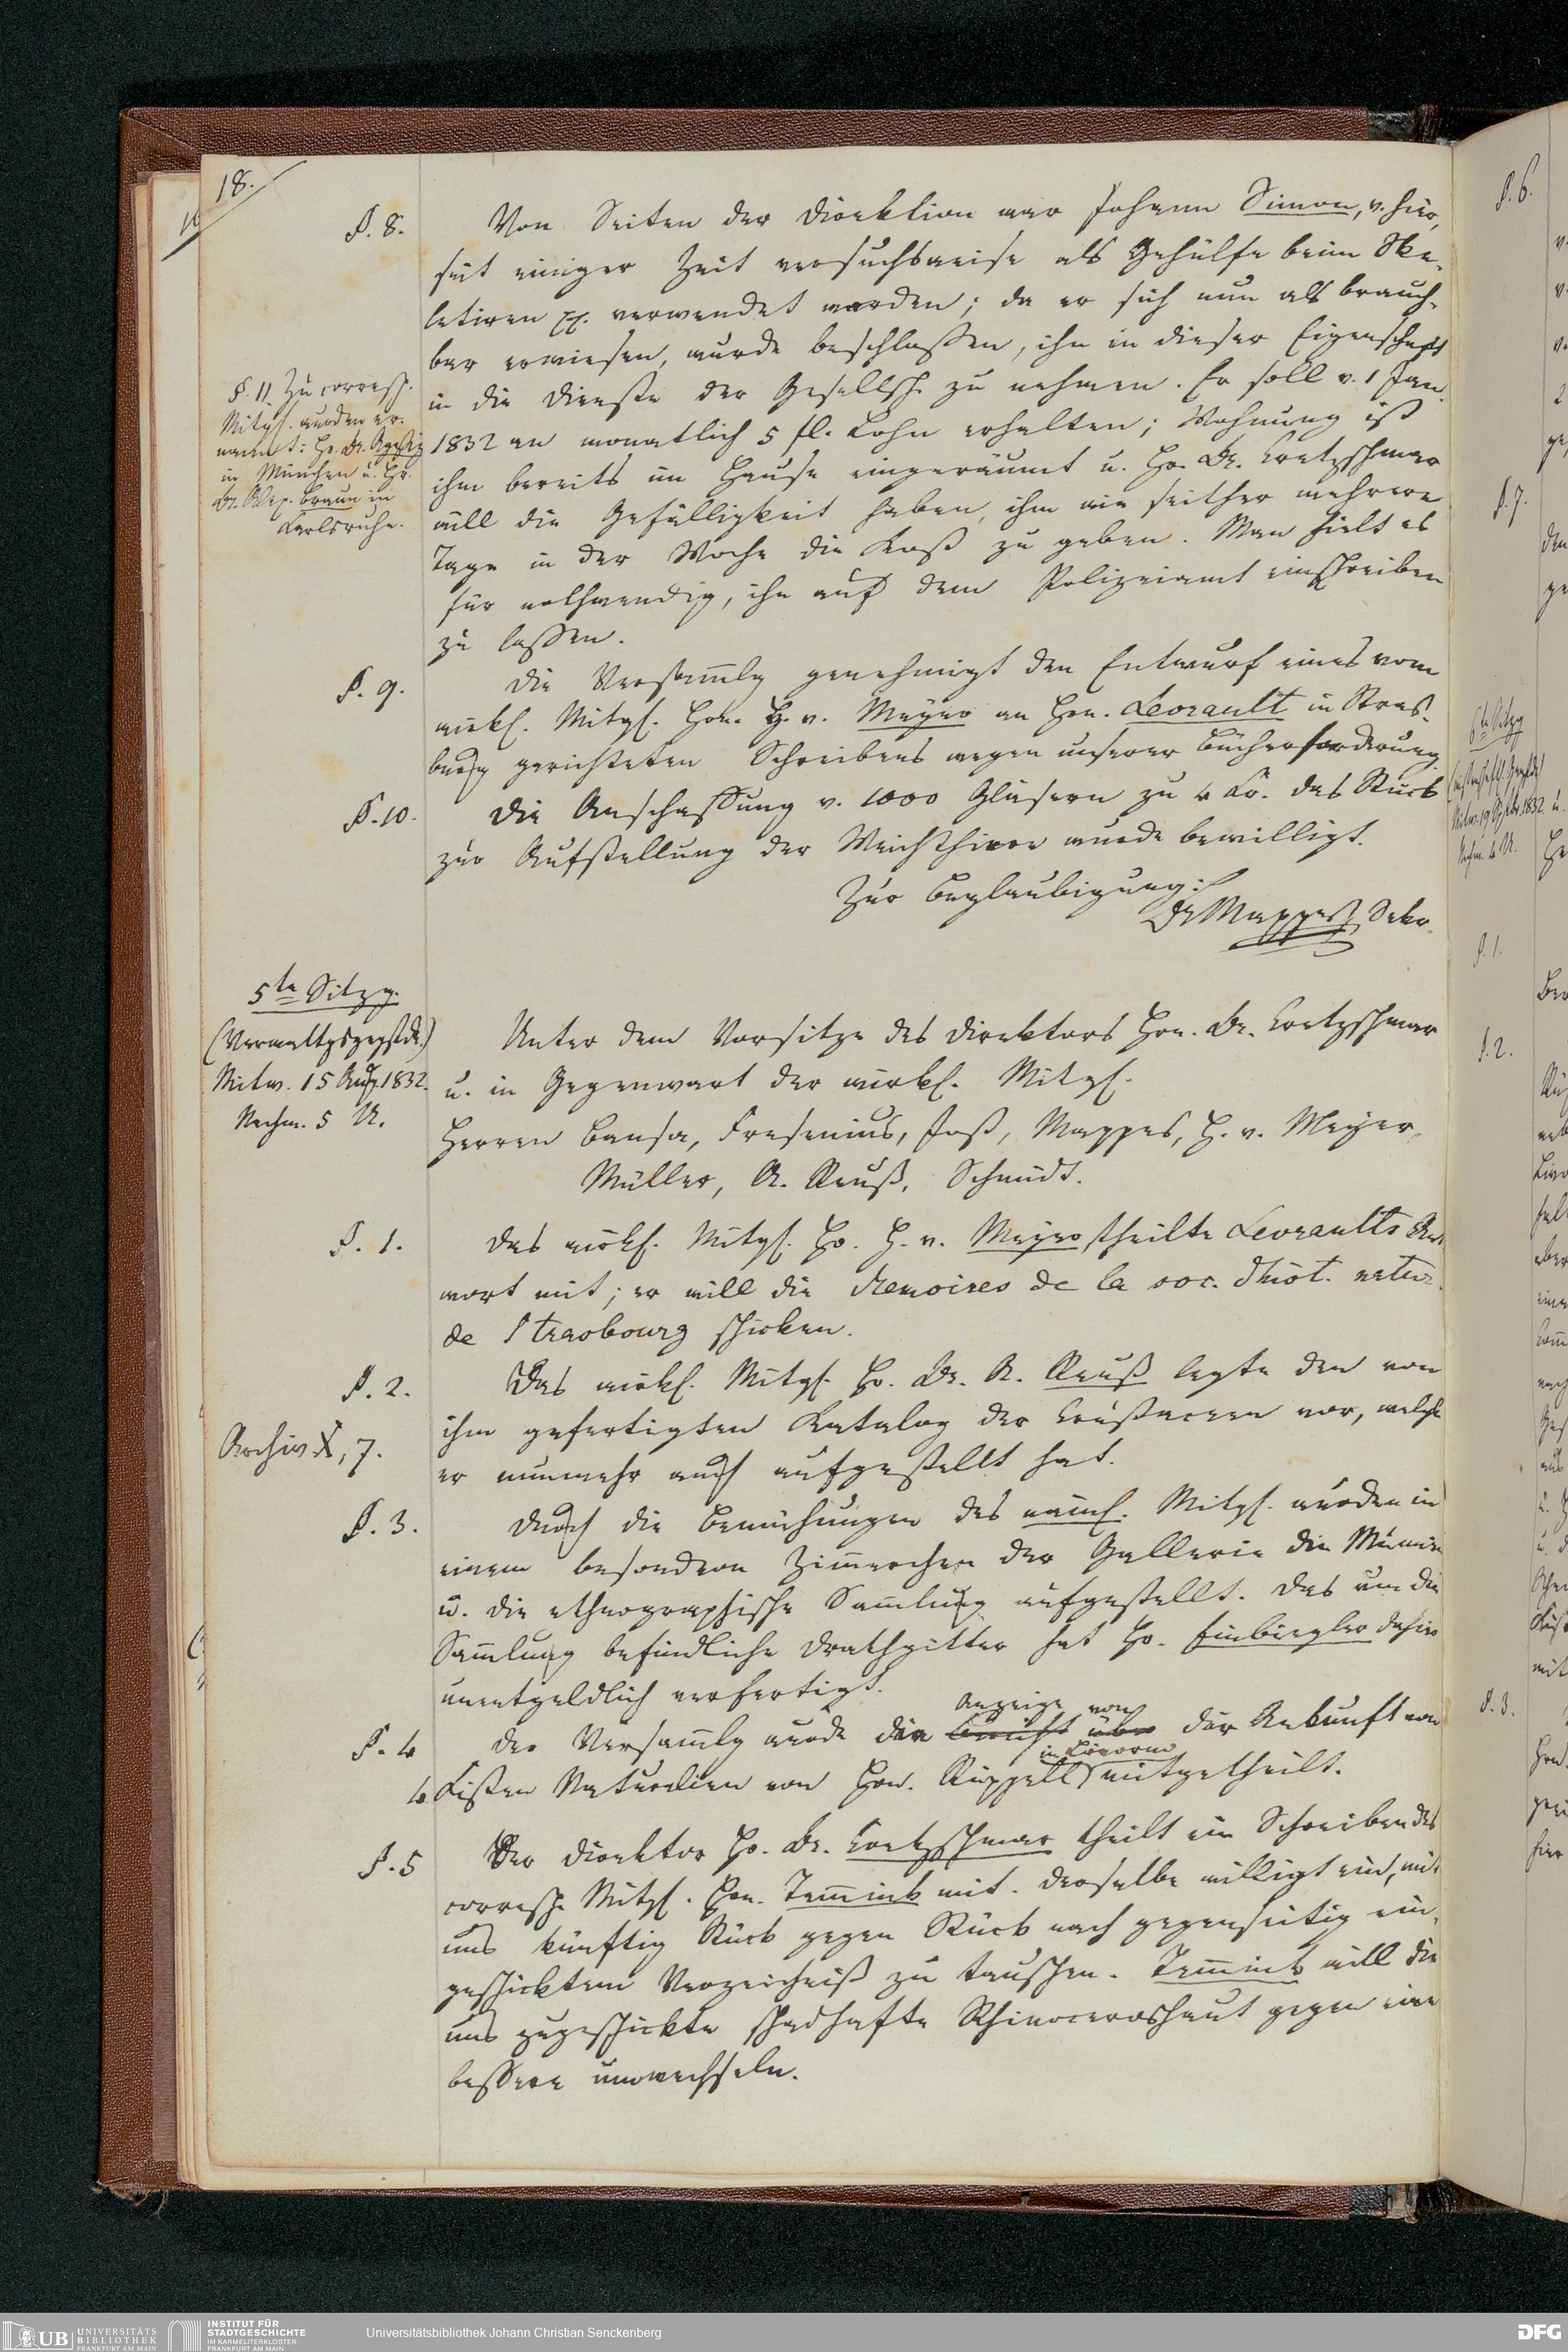 18.
§. 8.
Von Seiten der Direktion war Johann Simon, v. hier,
seit einiger Zeit versuchsweise als Gehülfe beim Ske-
letiren pp. verwendet worden; da er sich nun als brauch-
bar erwiesen, wurde beschlossen, ihn in dieser Eigenschaft
in die Dienste der Gesellsch. zu nehmen. Er soll v. 1 Jan.
1832 an monatlich 5 fl. Lohn erhalten; Wohnung ist
ihm bereits im Hause eingeräumt u. Hr. Dr. Cretzschmar
will die Gefälligkeit haben, ihm wie seither mehrere
Tage in der Woche die Kost zu geben. Man hielt es
für nothwendig, ihn auf dem Polizeiamt einschreiben
zu lassen.
§. 11. Zu corresp.
Mitgl. wurden er-
nannt: Hr. Dr. Agassiz
in München u. Hr.
Dr. Alex. Braun in
Karlsruhe.
§. 9.
Die Versamlg genehmigt den Entwurf eines vom
wirkl. Mitgl. Hrn. H. v. Meyer an Hrn. Levrault in Stras-
burg gerichteten Schreibens wegen unserer Bücherforderung.
§. 10.
Die Anschaffung v. 1000 Gläsern zu 4 Kr. das Stück
zur Aufstellung der Weichthiere wurde bewilligt.
Zur Beglaubigung:
Dr Mappes, Sekr.
5te Sitzg.
(Verwaltgsgegstde.)
Mitw. 15 Aug. 1832.
Nachm. 5 U.
Unter dem Vorsitze des Direktors Hrn. Dr. Cretzschmar
u. in Gegenwart der wirkl. Mitgl.
Herren Bansa, Fresenius, Jost, Mappes, H. v. Meyer,
Müller, A. Reuß, Schmidt.
§. 1.
Das wirkl. Mitgl. Hr. H. v. Meyer theilte Levraults Ant
wort mit; er will die Memoires de la soc. d'hist. natur.
de Strasbourg schicken.
§. 2.
Das wirkl. Mitgl. Hr. Dr. A. Reuß legte den von
ihm gefertigten Katalog der Crustaceen vor, welche
er nunmehr auch aufgestellt hat.
Archiv X, 7.
§. 3.
Durch die Bemühungen des näml. Mitgl. wurden in
einem besondern Zimmerchen der Gallerie die Mumien
u. die ethnographische Samlung aufgestellt. Das um die
Samlung befindliche Drathgitter hat Hr. Einbiegler dahier
unentgeldlich verfertigt.
§. 4
Der Versamlg wurde die Bericht über Anzeige von der Ankunft von
4 Kisten Naturalien von Hrn. Rüppell in Livorno mitgetheilt.
§. 5
Der Direktor Hr. Dr. Cretzschmar theilt ein Schreiben des
corresp. Mitgl. Hrn. Temmink mit. Derselbe willigt ein, mit
uns künftig Stück gegen Stück nach gegenseitig ein-
geschicktem Verzeichniß zu tauschen. Temmink will die
uns zugeschickte schadhafte Rhinoceroshaut gegen eine
bessere umwechseln.
§. 6.
§. 7.
6te Sitzg
§. 1.
§. 2.
§. 3.
UB UNIVERSITÄTS BIBLIOTHEK FRANKFURT AM MAIN
INSTITUT FÜR STADTGESCHICHTE IM KARMELITERKLOSTER FRANKFURT AM MAIN
Universitätsbibliothek Johann Christian Senckenberg
DFG